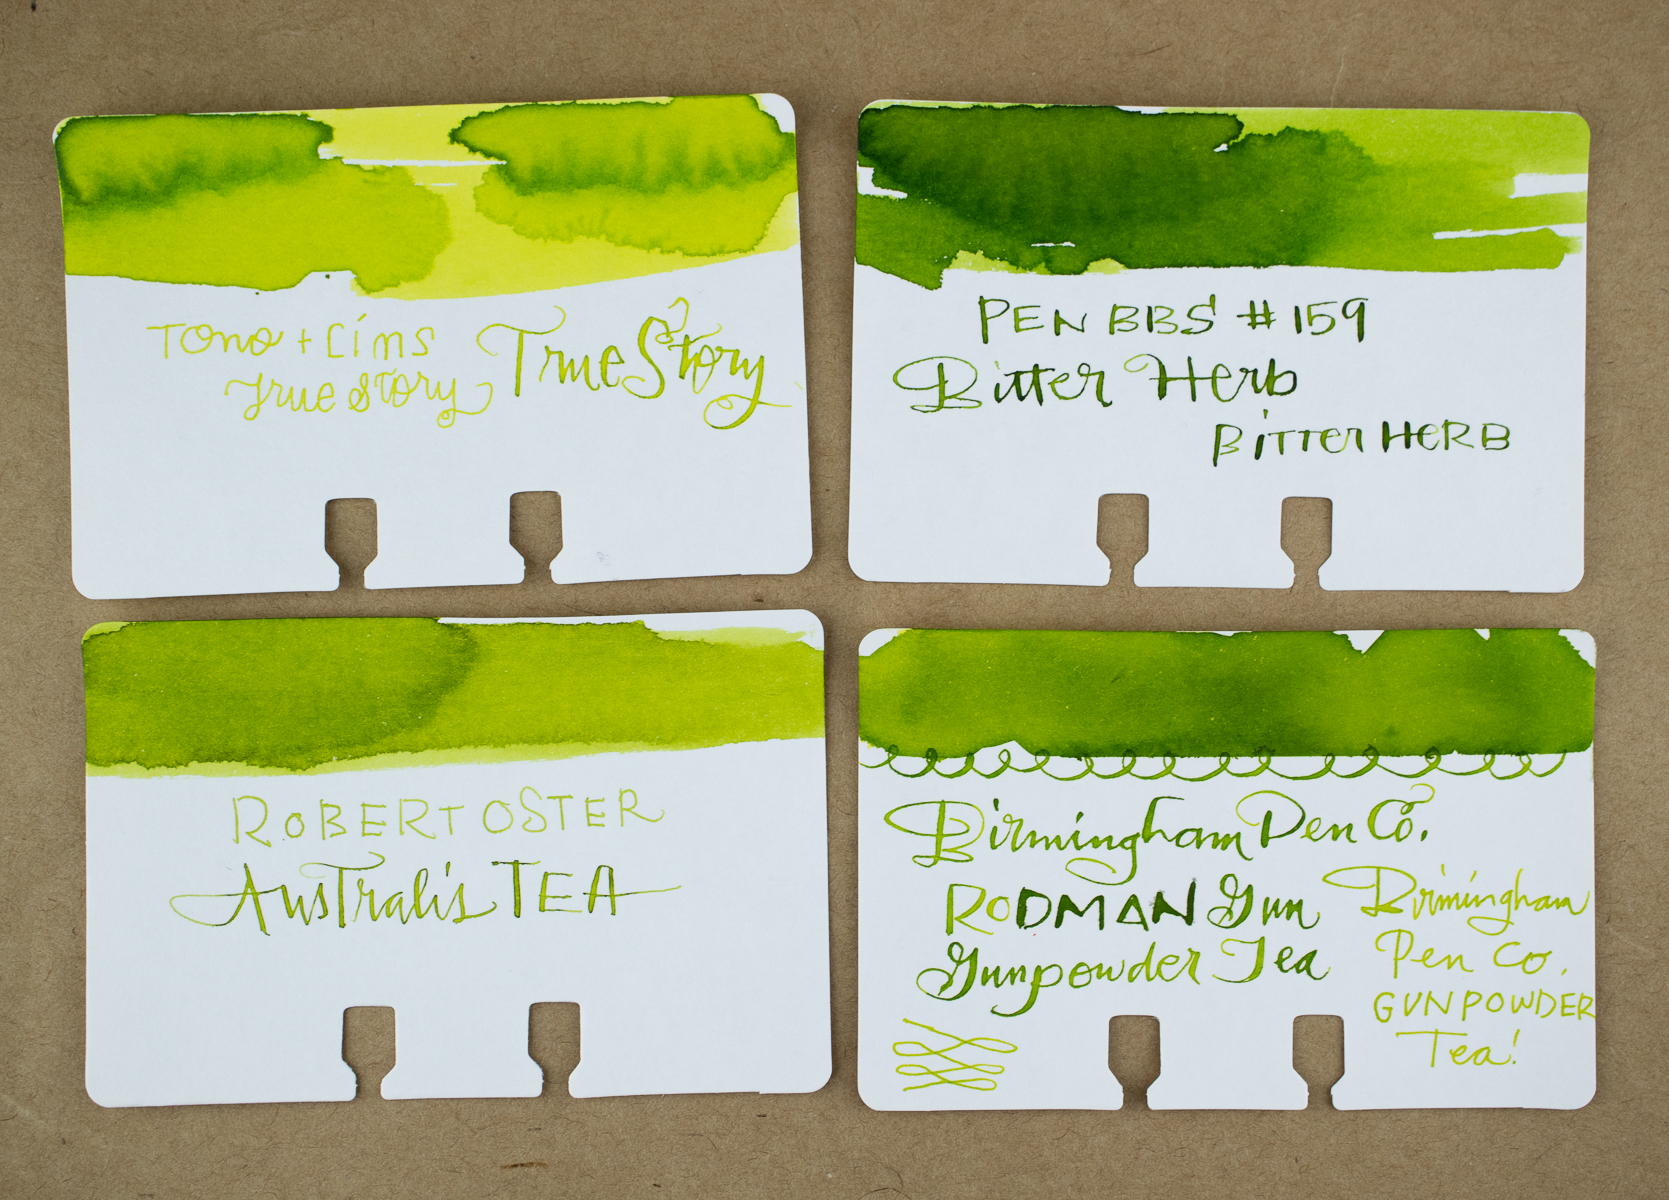 Tono + Lims
True Story
True Story
PEN BBS #159
Bitter Herb
Bitter HERB
ROBERT OSTER
Australis TEA
Birmingham Pen Co.
RODMAN Gun
Gunpowder Tea
Birmingham
Pen Co.
GUNPOWDER
Tea!